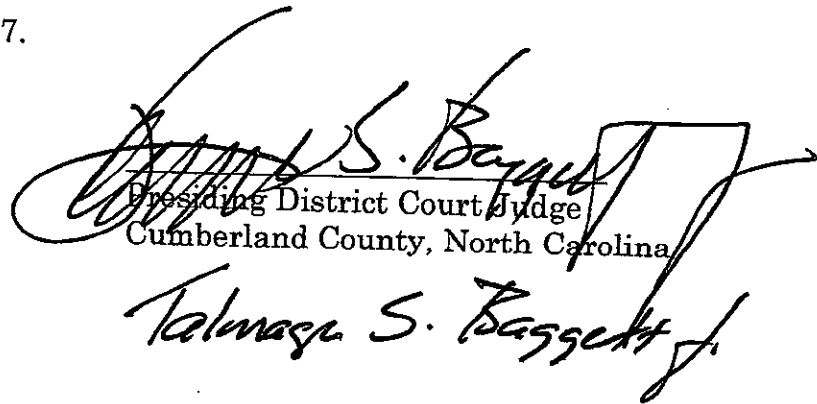 7.
S. Baggett
Presiding District Court Judge
Cumberland County, North Carolina
Talmage S. Baggett Jr.